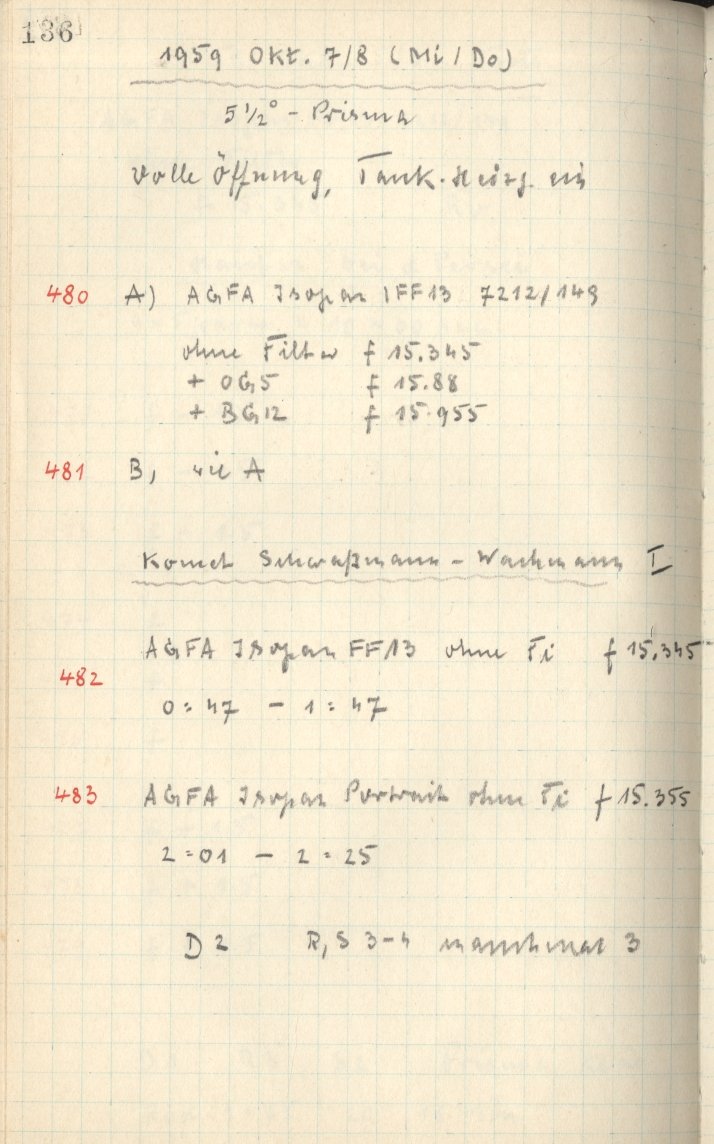 136
1959 Okt. 7/8 (Mi/Do)
5 1/2° - Prisma
Volle Öffnung, Tank-Heizg. ein
480 A) AGFA Isopan IFF13 7212/149
ohne Filter f 15.345
+ OG5 f 15.88
+ BG12 f 15.955
481 B, wie A
Komet Schwaßmann - Wachmann I
AGFA Isopan FF13 ohne Fi f 15.345
482
0=47 - 1=47
483 AGFA Isopan Portrait ohne Fi f 15.355
2=01 - 2=25
D 2 R, S 3-4 manchmal 3